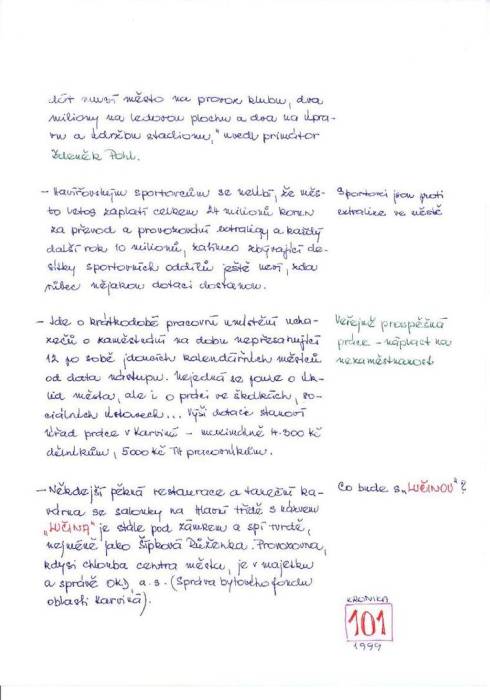 dát musí město na provoz klubu, dva
miliony na ledovou plochu a dva na úpra-
vu a údržbu stadionu," uvedl primátor
Zdeněk Pohl.
- Havířovským sportovcům se nelíbí, že měs-
to letos zaplatí celkem 24 milionů korun
za převod a provozování extraligy a každý
další rok 10 milionů, zatímco zbývající de-
sítky sportovních oddílů ještě neví, zda
vůbec nějakou dotaci dostanou.
Sportovci jsou proti
extralize ve městě
- Jde o krátkodobé pracovní umístění ucha-
zečů o zaměstnání na dobu nepřesahující
12 po sobě jdoucích kalendářních měsíců
od data nástupu. Nejedná se pouze o úk-
lid města, ale i o práci ve školkách, so-
ciálních ústavech... Výši dotace stanoví
Úřad práce v Karviné - maximálně 4.300 Kč
dělníkům, 5000 Kč TH pracovníkům.
Veřejně prospěšná
práce - náplast na
nezaměstnanost
- Někdejší pěkná restaurace a taneční ka-
várna se salonky na Hlavní třídě s názvem
„LUČINA" je stále pod zámkem a spí tvrdě,
nejméně jako Šípková Růženka. Provozovna,
kdysi chlouba centra města, je v majetku
a správě OKD a. s. (Správa bytového fondu
oblasti Karviná).
Co bude s „LUČINOU"?
KRONIKA
101
1999